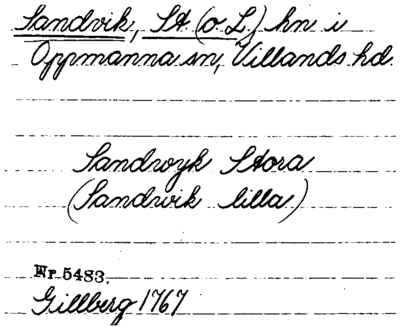 Sandvik, St. (o. L.) hn i
Oppmanna sn, Villands hd.
Sandwyk Stora
(Sandwik lilla)
Nr. 5483.
Gillberg 1767